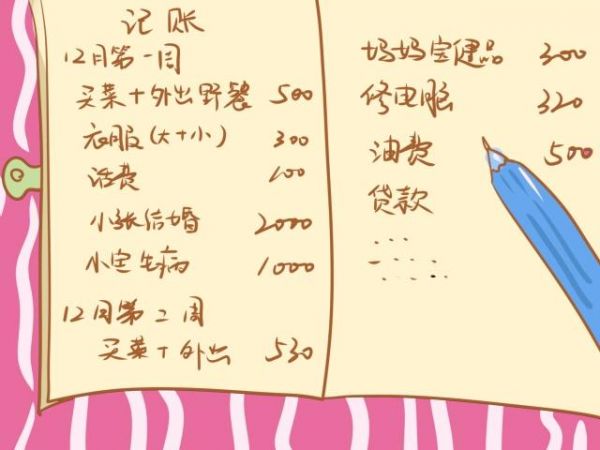 记账
12月第一周
买菜+外出野餐 500
衣服(大+小) 300
话费 100
小张结婚 2000
小宝生病 1000
12月第二周
买菜+外出 530
妈妈宝健品 300
修电脑 320
油费 500
贷款